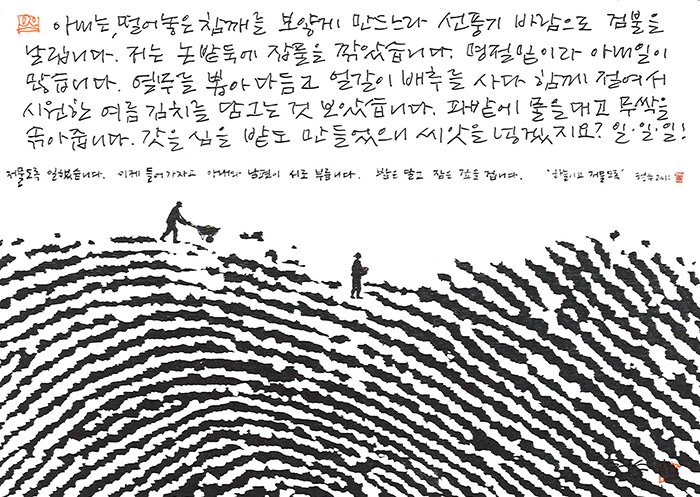 아내는, 떨어놓은 참깨를 보얗게 만드느라 선풍기 바람으로 검불을
날립니다. 저는 논밭둑에 잡풀을 깎았습니다. 명절밑이라 아내일이
많습니다. 열무를 뽑아 다듬고 얼갈이 배추를 사다 함께 절여서
시원한 여름 김치를 담그는 것 보았습니다. 파밭에 물을 대고 무싹을
솎아줍니다. 갓을 심을 밭도 만들었으니 씨앗을 넣겠지요? 일·일·일!
저물도록 일했습니다. 이제 들어가자고 아내와 남편이 서로 부릅니다. 밥은 달고 잠은 깊을 겁니다. '하늘이고 저물도록' 철수 2011